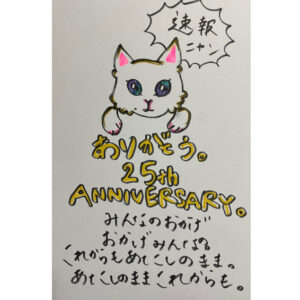 速報
ニャン
ありがとう。
25th
ANNIVERSARY.
みんなのおかげ
おかげみんなの
これからもあたしのまま。
あたしのままこれからも。